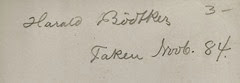 Harald Boothkes 3-
Taken Novb. 84.